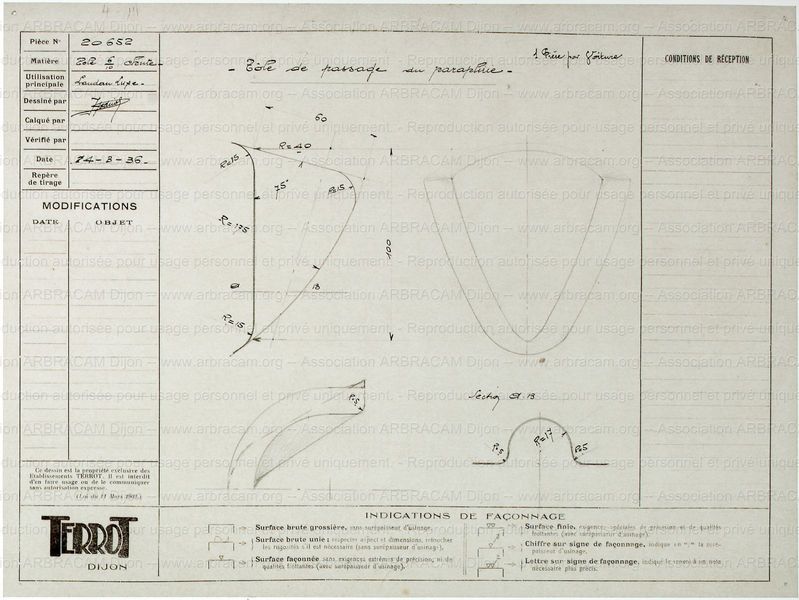 Pièce N° 20652
Matière
Utilisation
principale Landau Luxe
Dessiné par
Calqué par
Vérifié par
Date 24-3-36
Repère
de tirage
MODIFICATIONS
DATE OBJET
- Tôle de passage du parapluie -
1 Pièce par Voiture
CONDITIONS DE RÉCEPTION
60
R=40
R=15
1
75°
R=15
R=175
100
B
R=15
R.5
Section B
R=17
R=5
R=5
Ce dessin est la propriété exclusive des
Etablissements TERROT. Il est interdit
d'en faire usage ou de le communiquer
sans autorisation expresse.
(Loi du 11 Mars 1902.)
TERROT
DIJON
INDICATIONS DE FAÇONNAGE
Surface brute grossière, sans surépaisseur d'usinage.
Surface brute unie; respecter aspect et dimensions, retoucher
les rugosités s'il est nécessaire (sans surépaisseur d'usinage).
Surface façonnée sans exigences extrêmes de précision, ni de
qualités frottantes (avec surépaisseur d'usinage).
Surface finie, exigences spéciales de précision et de qualités
frottantes (avec surépaisseur d'usinage).
Chiffre sur signe de façonnage, indique en la surépaisseur d'usinage.
Lettre sur signe de façonnage, indique le renvoi à un nota
nécessaire plus précis.
www.arbracam.org - Association ARBRACAM Dijon
Reproduction autorisée pour usage personnel et privé uniquement.